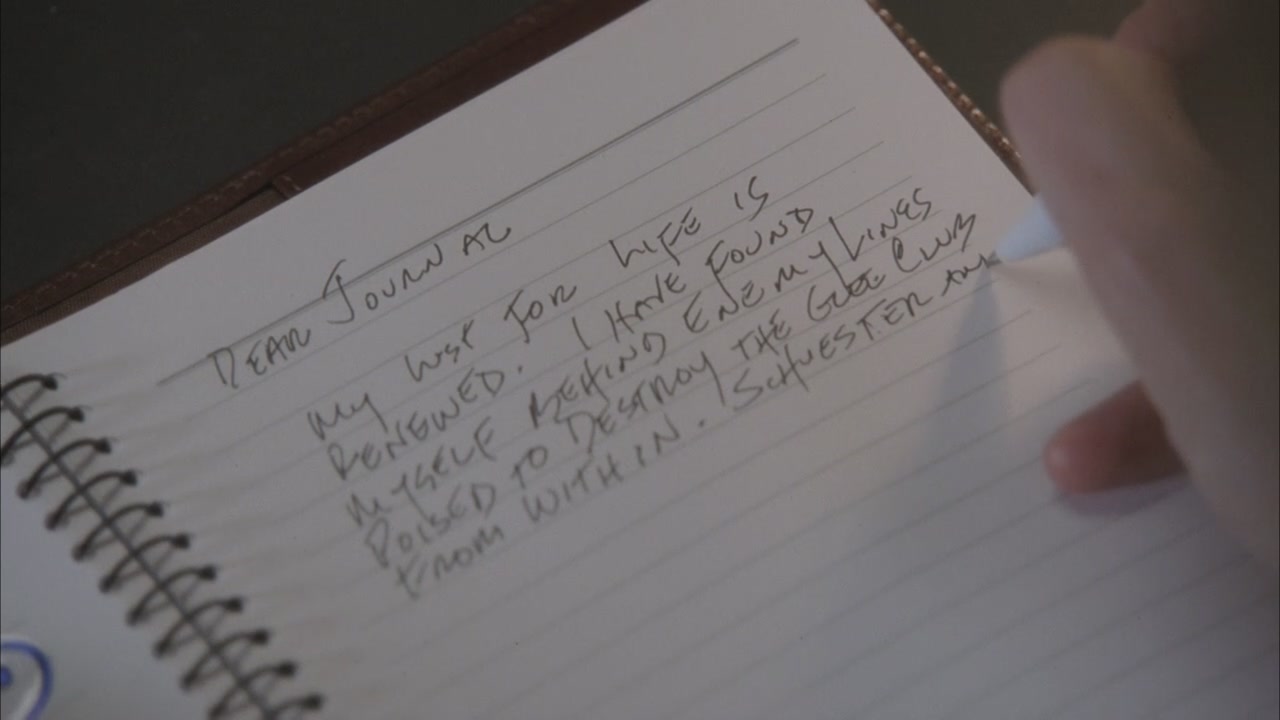 DEAR JOURNAL
MY LUST FOR LIFE IS
RENEWED. I HAVE FOUND
MYSELF BEHIND ENEMY LINES
POISED TO DESTROY THE GLEE CLUB
FROM WITHIN. SCHUESTER